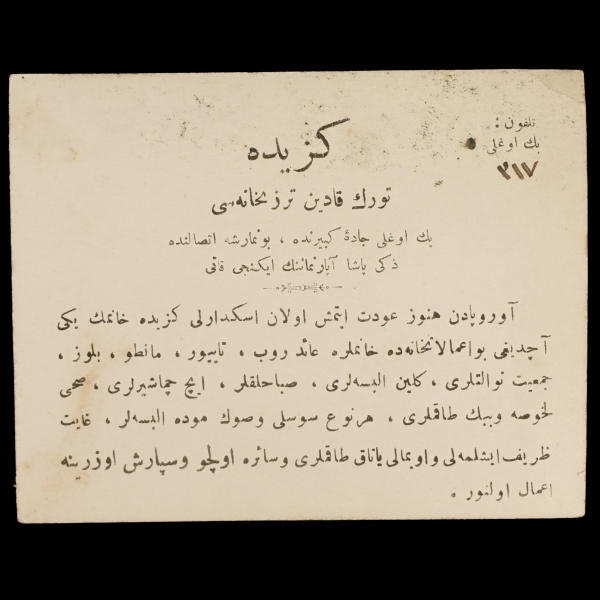 تلفون :
بك اوغلی
٣١٧
كزیده
تورك قادین ترزیخانه‌سی
بك اوغلی جادهٔ كبیرنده ، بونمارشه اتصالنده
ذكی پاشا آپارتماننك ایكنجی قاتی
آوروپادن هنوز عودت ایتمش اولان اسكدارلی كزیده خانمك یكی
آچدیغی بو اعمالاتخانه‌ده خانملره عائد روب ، تاییور ، مانطو ، بلوز ،
جمعیت توالتلری ، كلین البسه‌لری ، صباحلقلر ، ایچ چماشیرلری ، صحی
لخوصه وبیك طاقملری ، هر نوع سوسلی وصوك موده البسه‌لر ، غایت
ظریف ایشلمه‌لی و اویمالی یاتاق طاقملری وسائره اولچو وسپارش اوزرینه
اعمال اولنور .